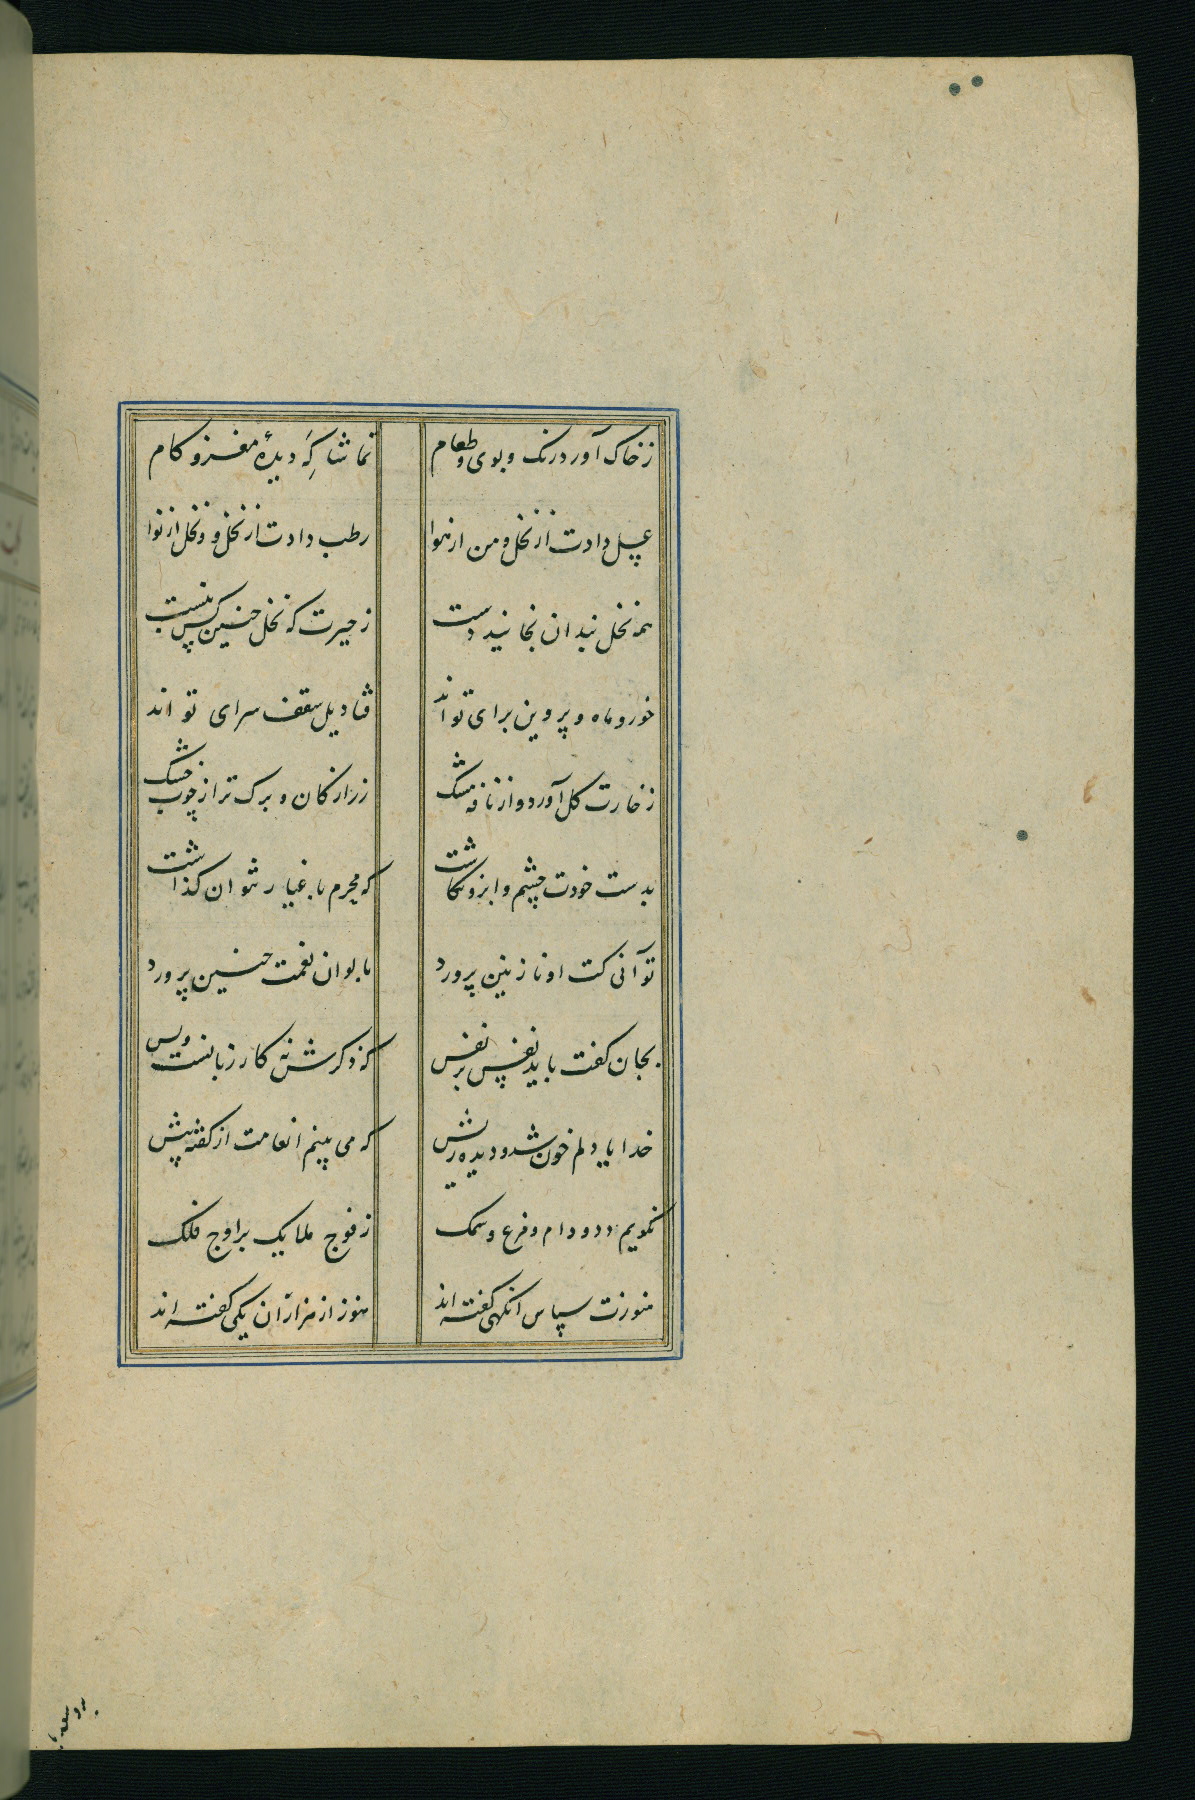 زخاک آورد رنک و بوی و طعام
تماشاکه دیدهٔ مغز و کام
عسل دادت از نحل و من از هوا
رطب دادت از نخل و نخل از نوا
همه نخلبندان بخایند دست
زحیرت که نخلی چنین کس نبست
خور و ماه و پروین برای تو اند
قنادیل سقف سرای تو اند
زخارت کل آورد و از نافه مشک
زر از کان و برک تر از چوب خشک
بدست خودت چشم و ابرو نکاشت
که محرم باغیار نتوان کذاشت
توانا کت او نازنین پرورد
بالوان نعمت چنین پرورد
بجان کفت باید نفس بر نفس
که ذکرش نه کار زبانست و بس
خدایا دلم خون شد و دیده ریش
که می بینم انعامت از کفته بیش
نکویم دد و دام و مور و سمک
ز فوج ملایک بر اوج فلک
هنوزت سپاس اندکی کفته اند
هنوز از هزاران یکی کفته اند
برو سعدیا